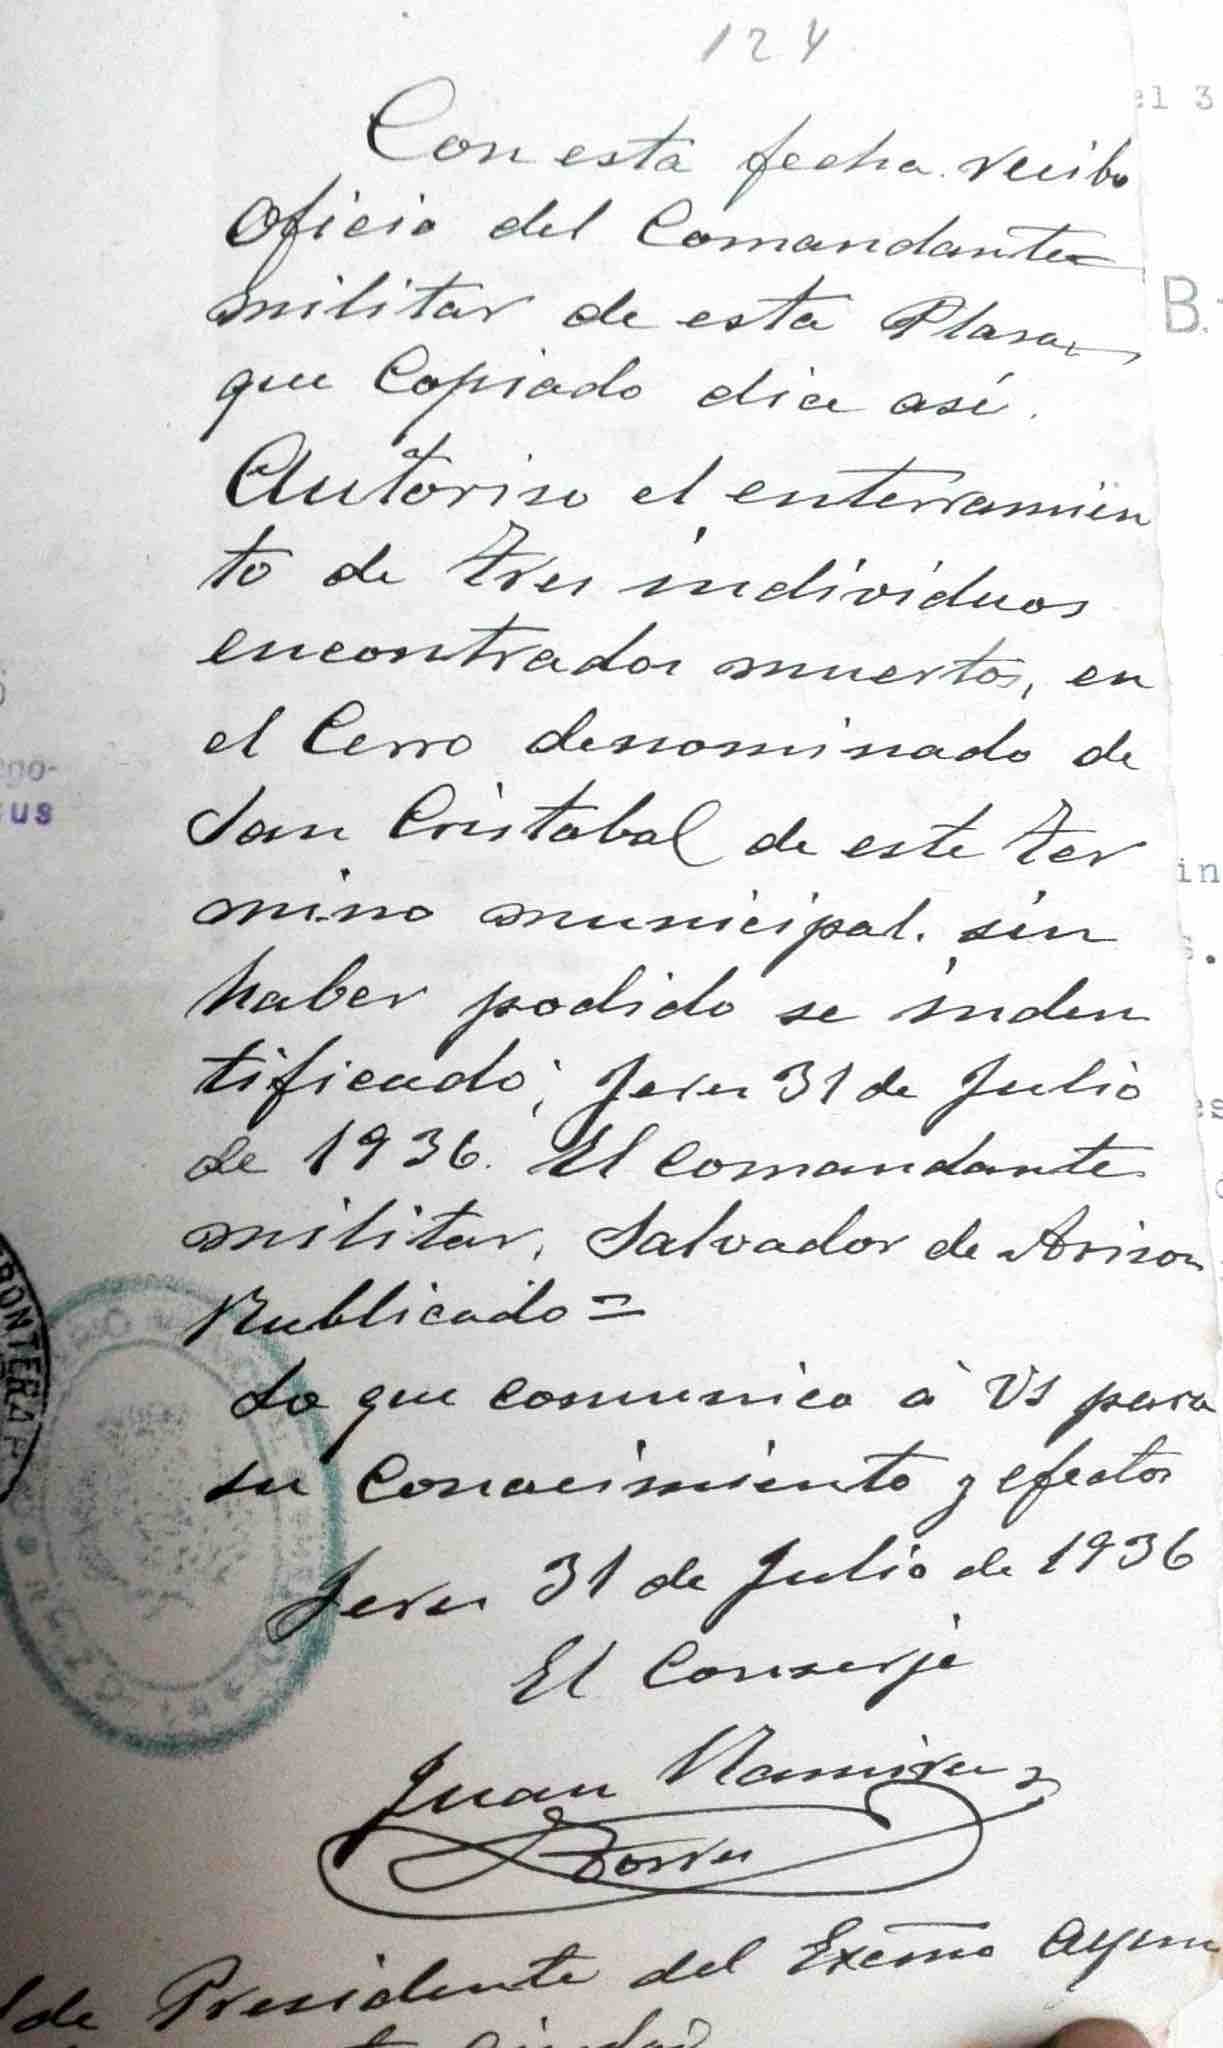 124
Con esta fecha recibo
Oficio del Comandante
militar de esta Plasa
que Copiado dice así.
Autoriso el enterramien
to de tres individuos
encontrados muertos, en
el Cerro denominado de
San Cristobal de este ter
mino municipal. sin
haber podido se inden
tificado; Jeres 31 de Julio
de 1936. El Comandante
militar, Salvador de Arison
Rublicado =
Lo que comunico á VS para
su conocimiento y efectos
Jeres 31 de Julio de 1936
El Conserje
Juan Ramires
Torres
lde Presidente del Excmo Ayun
Ciudad
el 3
B.
go-
sus
in
s.
es
RONTERA